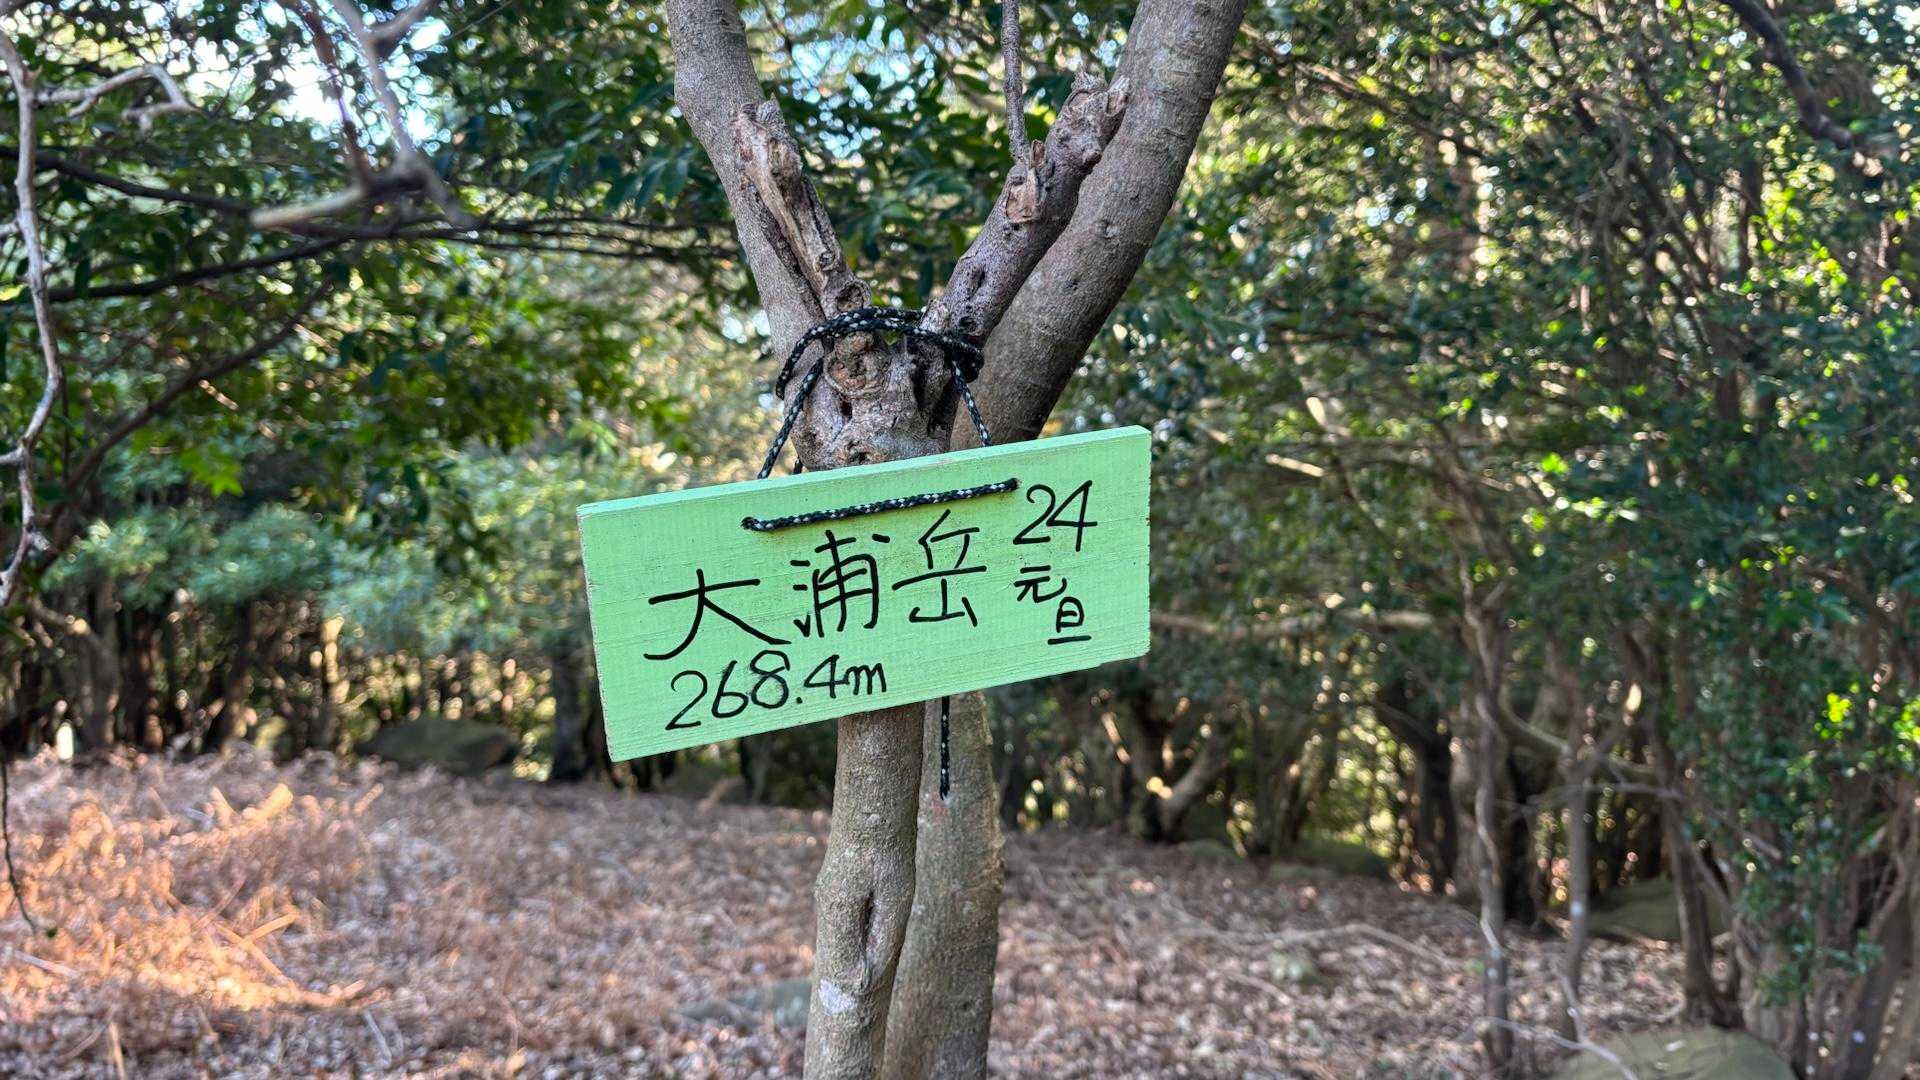 大浦岳
268.4m
24
元
旦